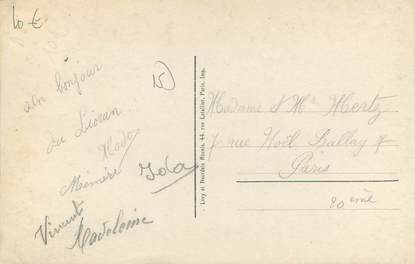 10 €
un bonjour
du Lioran
Mado
Mémère Ida
Vincent
Madeleine
15
Levy et Neurdein Réunis, 44, rue Letellier, Paris. Imp.
Madame et Mr Hertz
7 rue Noël Ballay 7
Paris
20ème